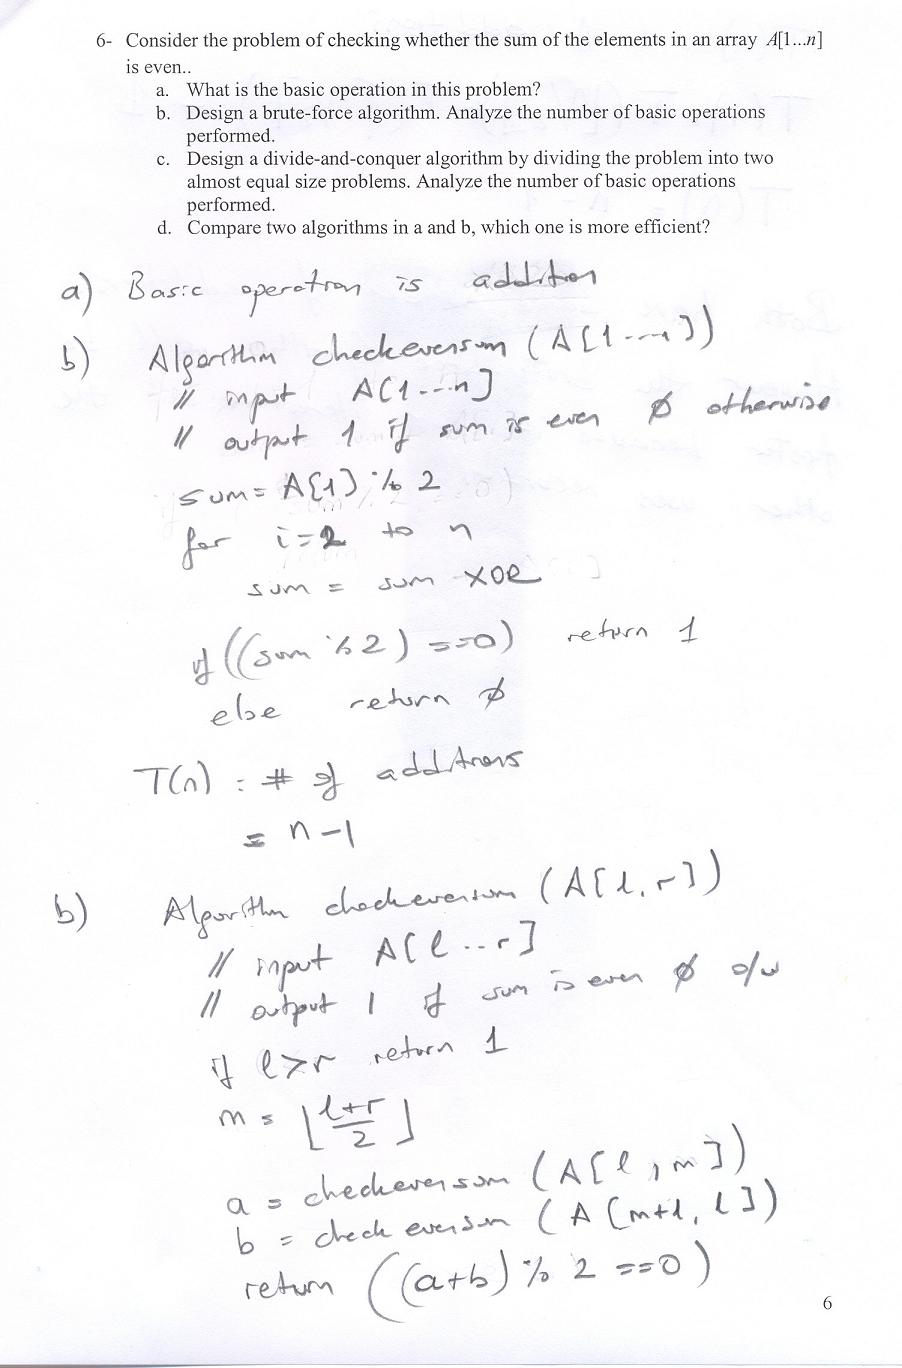 6- Consider the problem of checking whether the sum of the elements in an array A[1...n]
is even..
a. What is the basic operation in this problem?
b. Design a brute-force algorithm. Analyze the number of basic operations
performed.
c. Design a divide-and-conquer algorithm by dividing the problem into two
almost equal size problems. Analyze the number of basic operations
performed.
d. Compare two algorithms in a and b, which one is more efficient?
a) Basic operation is addition
b) Algorithm checkevensum (A[1---n])
// input A[1---n]
// output 1 if sum is even ∅ otherwise
sum = A[1] % 2
for i=2 to n
sum = sum XOR
if ((sum % 2) ==0) return 1
else return ∅
T(n) : # of additions
= n-1
b) Algorithm checkevensum (A[l, r])
// input A[l...r]
// output 1 if sum is even ∅ o/w
if l>r return 1
m = ⌊(l+r)/2⌋
a = checkevensum (A[l, m])
b = checkevensum (A[m+1, l])
return ((a+b) % 2 ==0)
6